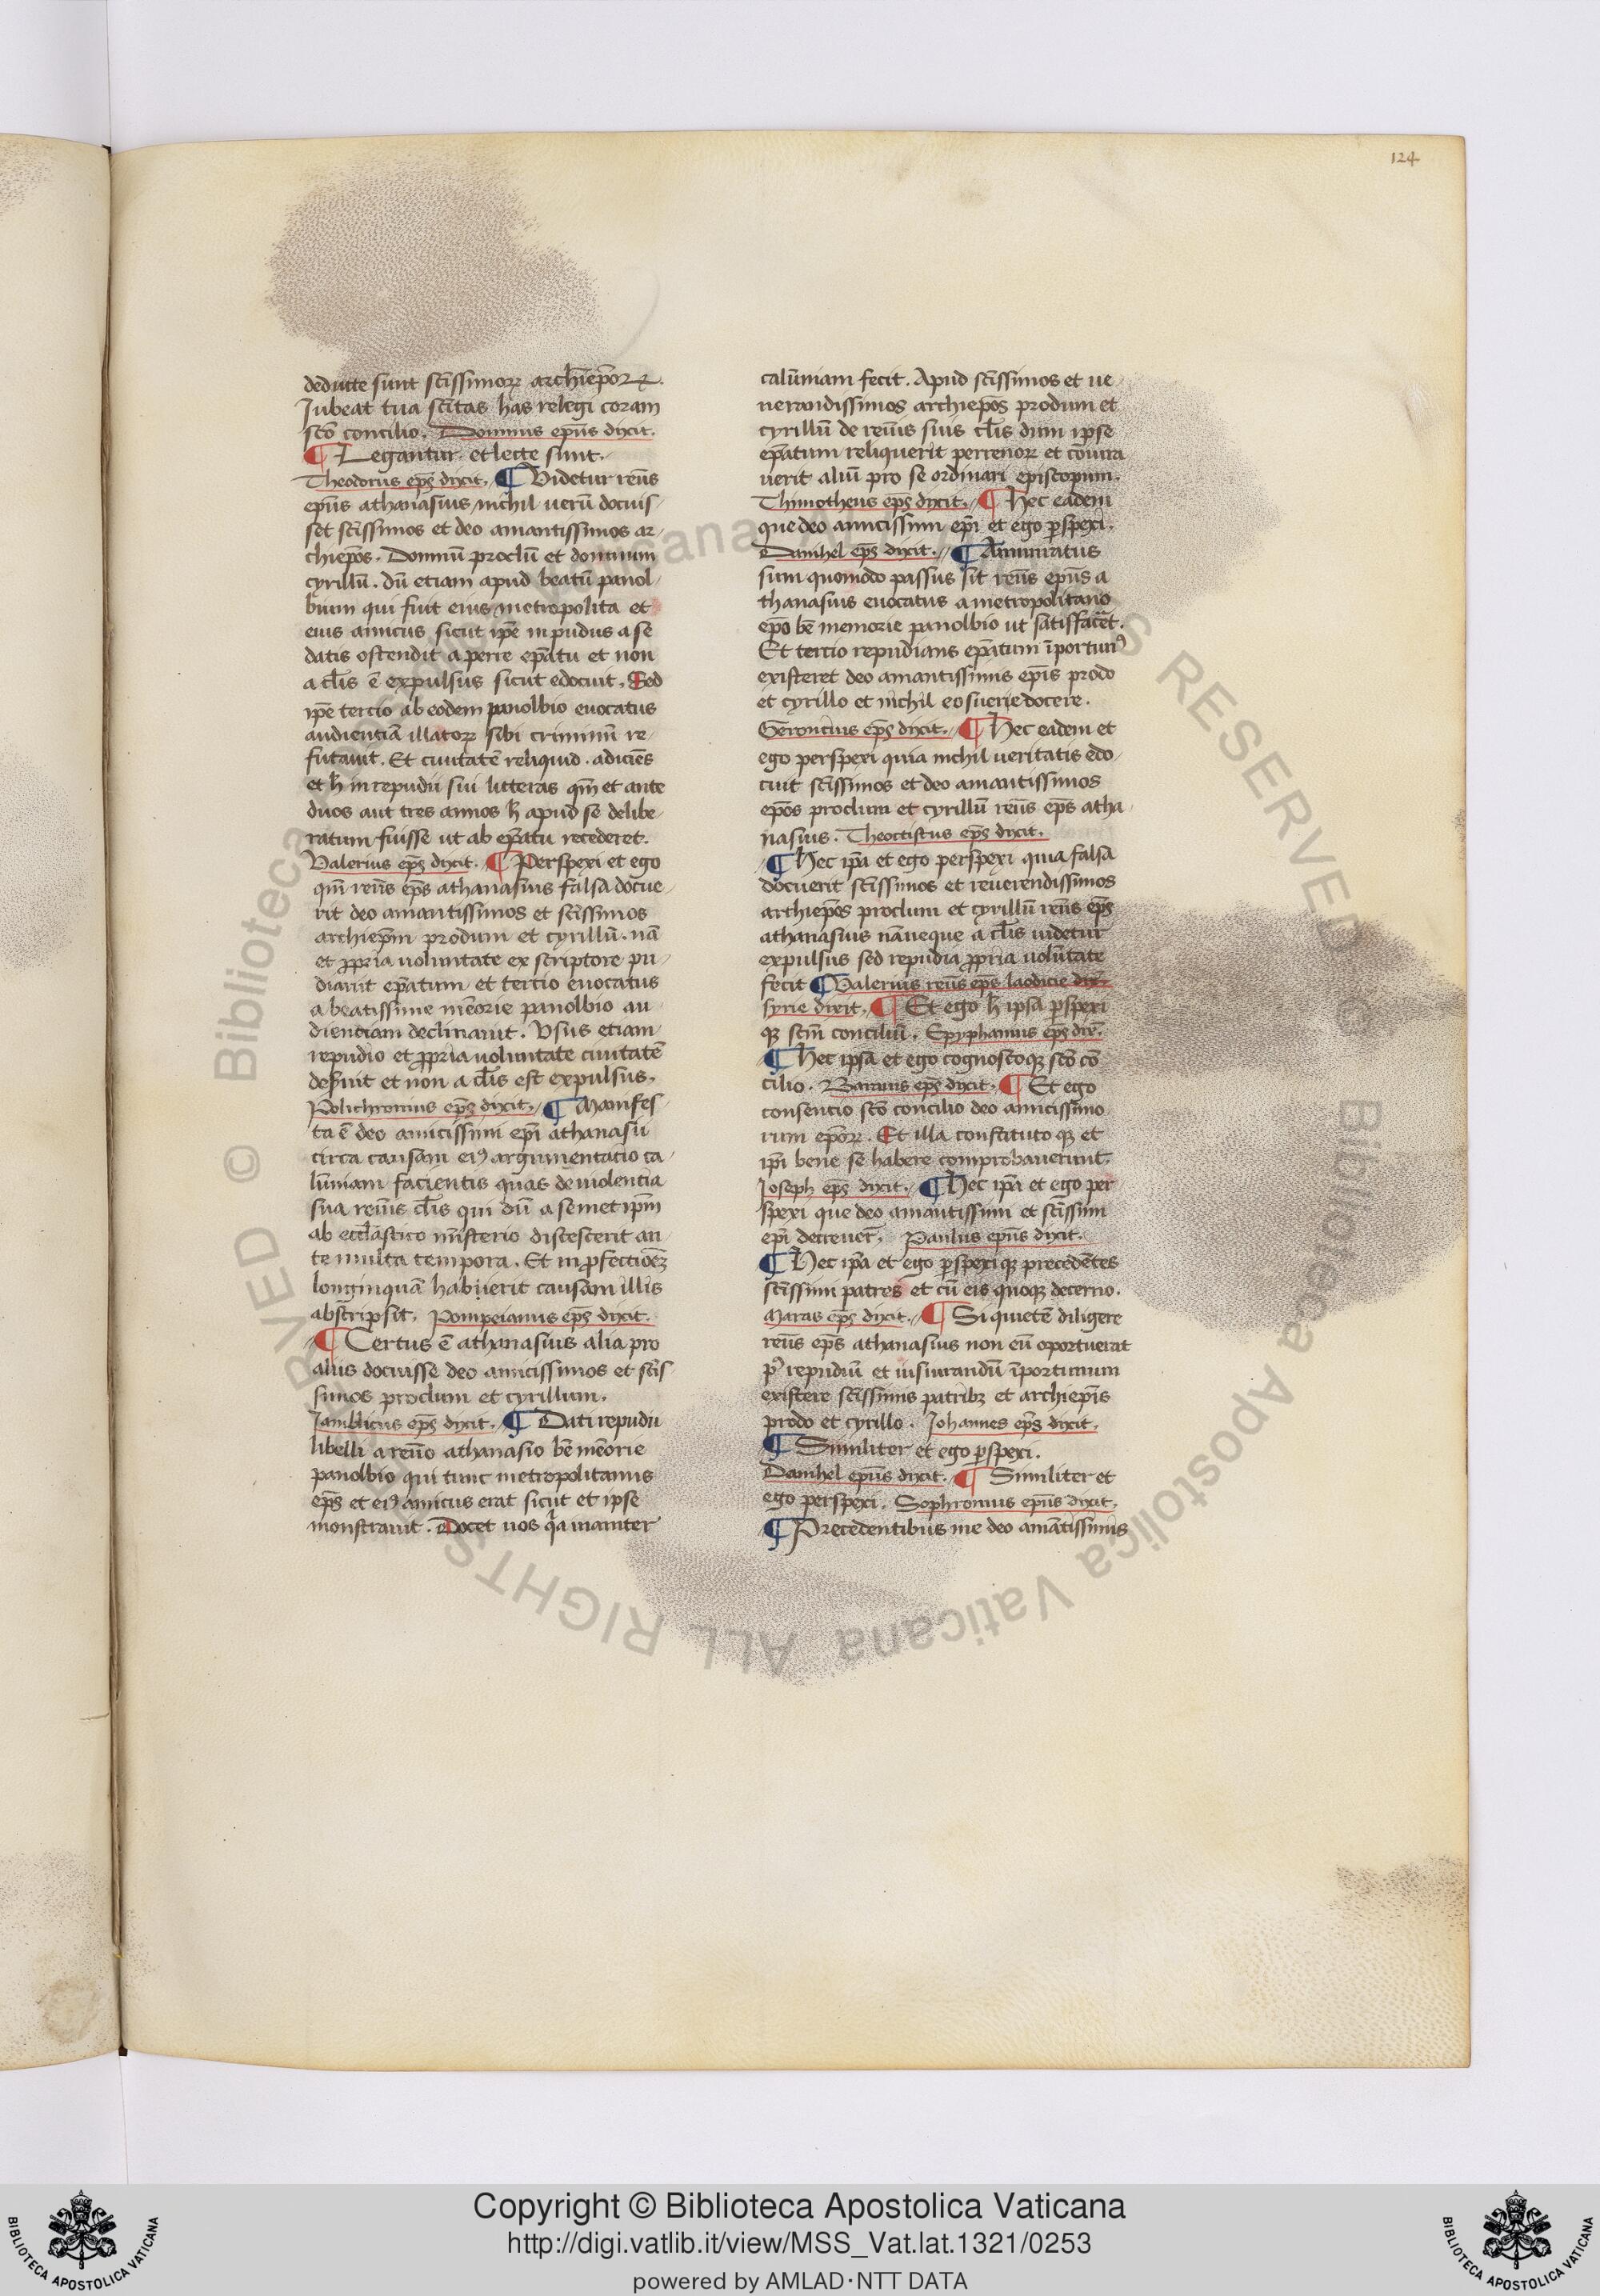 124
dedutte sunt scīssimoꝝ archiep̄oꝝ.
Jubeat tua scītas has relegi coram
scō concilio. Domnus ep̄us dixit.
¶ Legantur et lecte sunt.
Theodorus ep̄s dixit. ¶ Videtur reūs
ep̄us athanasius nichil uerū docuis
set scīssimos et deo amantissimos ar
chiep̄os. Domnū proclū et domnum
cyrillū. dū etiam apud beatū panol
bium qui fuit eius metropolita et
eius amicus sicut ip̄e inpudus a se
datis ostendit aperre ep̄atu et non
a cl̄is ē expulsus sicut edocuit. Sed
ip̄e tertio ab eodem panolbio euocatus
audientiā illatoꝝ sibi criminū re
futauit. Et ciuitatē reliquid. adiciēs
et h̄ in repudii sui litteras qm̄ et ante
duos aut tres annos h̄ apud se delibe
ratum fuisse ut ab ep̄atu recederet.
Valerius ep̄s dixit. ¶ Perspexi et ego
qm̄ reūs ep̄s athanasius falsa docue
rit deo amantissimos et scīssimos
archiep̄m proclum et cyrillū. nā
et ꝓpria uoluntate ex scriptore pu
diauit ep̄atum et tertio euocatus
a beatissime mēorie panolbio au
dientiam declinauit. Usus etiam
repudio et ꝓpria uoluntate ciuitatē
deseruit et non a cl̄is est expulsus.
Polichronius ep̄s dixit. ¶ Manifes
ta ē deo amicissimi ep̄i athanasii
circa causam eiꝰ argumentatio ca
lūniam facientis quas de uiolentia
sua reuīs cl̄is qui dū a semet ip̄m
ab eccl̄astico mīsterio discescerit an
te multa tempora. Et in ꝓfectionē
longinquā habuerit causam illis
abstripsit. Pompeianus ep̄s dixit.
¶ Certus ē athanasius alia pro
aliis docuisse deo amicissimos et scīs
simos proclum et cyrillum.
Jamblicus ep̄s dixit. ¶ Dati repudii
libelli a reūo athanasio bē mēorie
panolbio qui tunc metropolitanus
ep̄s et eiꝰ amicus erat sicut et ipse
monstrauit. Docet uos qa inaniter
calūniam fecit. Apud scīssimos et ue
nerandissimos archiep̄os proclum et
cyrillū de reuīs suis cl̄is dum ipse
ep̄atum reliquerit perrenoꝝ et coniura
uerit aliū pro se ordinari episcopum.
Thimotheus ep̄s dixit. ¶ Hec eadem
que deo amicissimi ep̄i et ego ꝑspexi.
Danihel ep̄s dixit. ¶ Ammiratus
sum quomodo passus sit reūs ep̄us a
thanasius euocatus a metropolitano
ep̄o bē memorie panolbio ut satisfacēt.
Et tertio repudians ep̄atum īportunꝰ
existeret deo amantissimis ep̄is proclo
et cyrillo et nichil eos uerie docere.
Gerontius ep̄s dixit. ¶ Hec eadem et
ego perspexi quia nichil ueritatis edo
cuit scīssimos et deo amantissimos
ep̄os proclum et cyrillū reūs ep̄s atha
nasius. Theoctistus ep̄s dixit.
¶ Hec ip̄a et ego perspexi quia falsa
docuerit scīssimos et reuerendissimos
archiep̄os proclum et cyrillū reūs ep̄s
athanasius nā neque a cl̄is uidetur
expulsus sed repudia ꝓpria uolūtate
fecit ¶ Valerius reūs ep̄s laodicie
syrie dixit. ¶ Et ego h̄ ipsa ꝑspexi
qꝫ scm̄ conciliū. Epyphanius ep̄s dix̄.
¶ Hec ipsa et ego cognosco qꝫ scō cō
cilio. Baranis ep̄s dixit. ¶ Et ego
consentio scō concilio deo amicissimo
rum ep̄oꝝ. Et illa constituto qꝫ et
ip̄i bene se habere comprobauerunt.
Joseph ep̄s dixit. ¶ Hec ip̄a et ego per
spexi que deo amantissimi et scīssimi
ep̄i decreuer̄. Paulus ep̄us dixit.
¶ Hec ip̄a et ego ꝑspexi qꝫ precedētes
scīssimi patres et cū eis quoqꝫ decerno.
Maras ep̄s dixit. ¶ Si quietē diligere
reūs ep̄s athanasius non eū oportuerat
pꝰ repudiū et iusiurandū īportunum
existere scīssimis patribꝫ et archiep̄is
proclo et cyrillo. Johannes ep̄s dixit.
¶ Similiter et ego ꝑspexi.
Danihel ep̄us dixit. ¶ Similiter et
ego perspexi. Sophronius ep̄us dixit.
¶ Precedentibus me deo amātissimis
Copyright © Biblioteca Apostolica Vaticana
http://digi.vatlib.it/view/MSS_Vat.lat.1321/0253
powered by AMLAD·NTT DATA
BIBLIOTECA APOSTOLICA VATICANA
BIBLIOTECA APOSTOLICA VATICANA